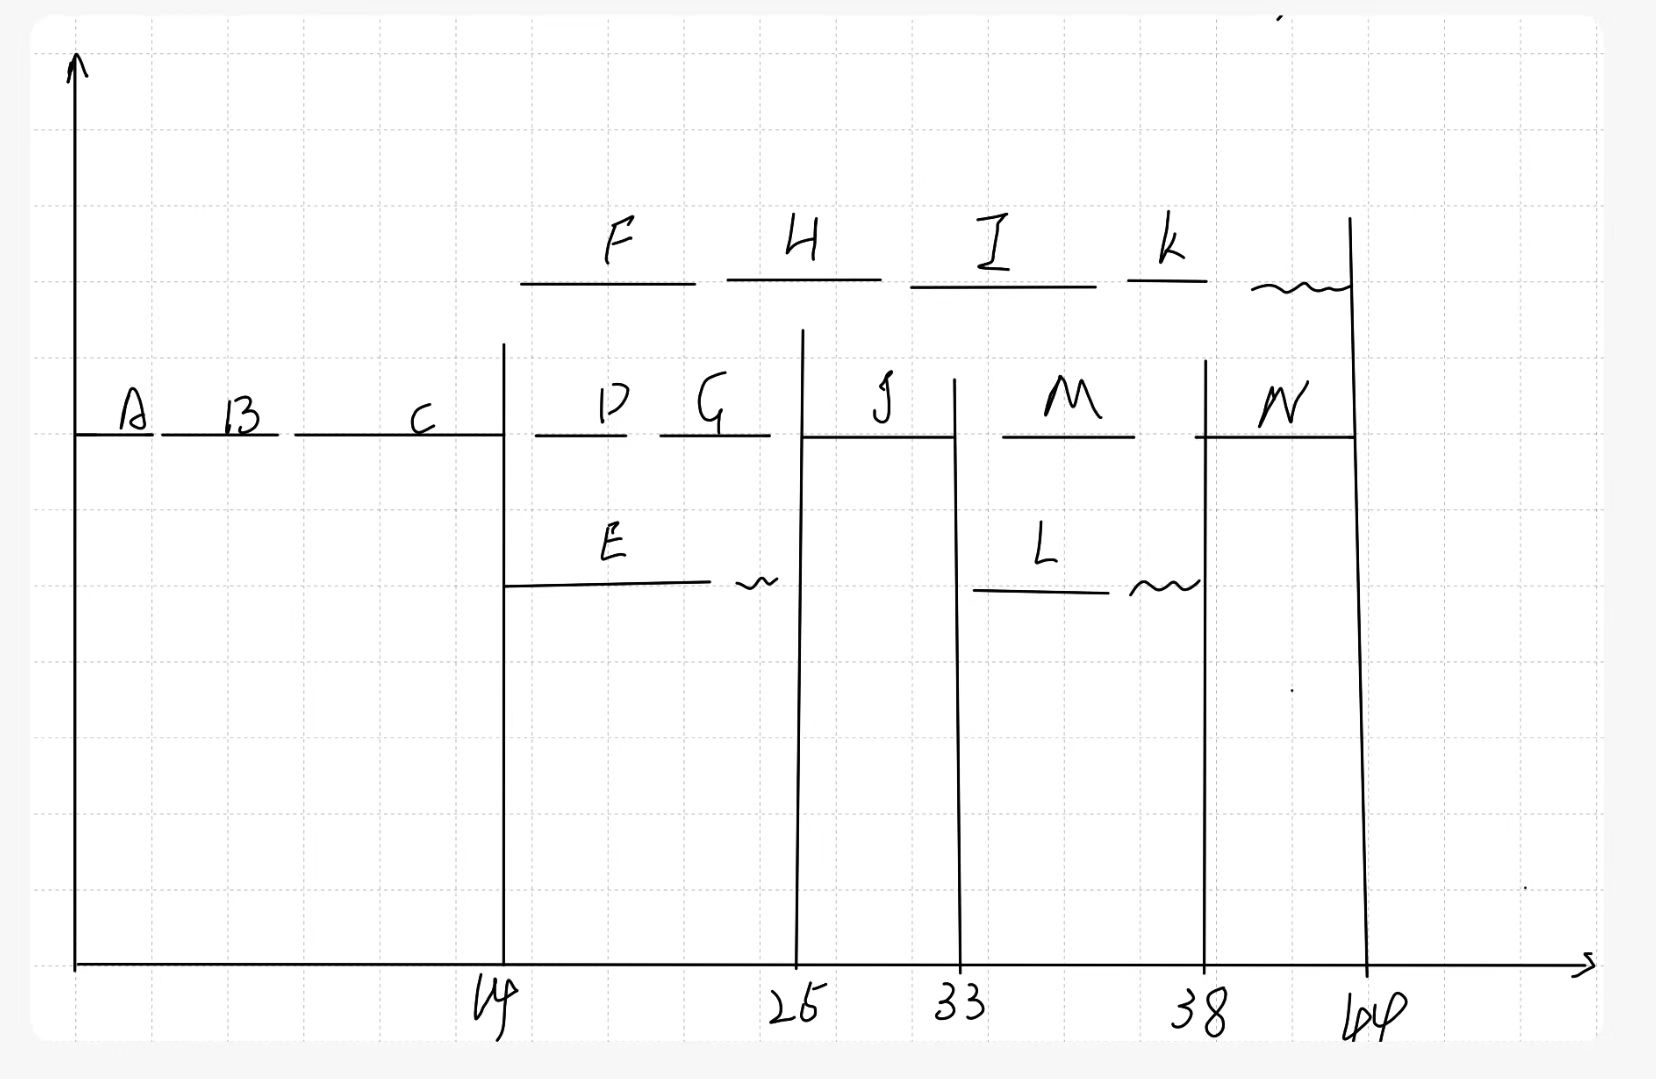 F H I k
A B C D G J M N
E L
14 25 33 38 44